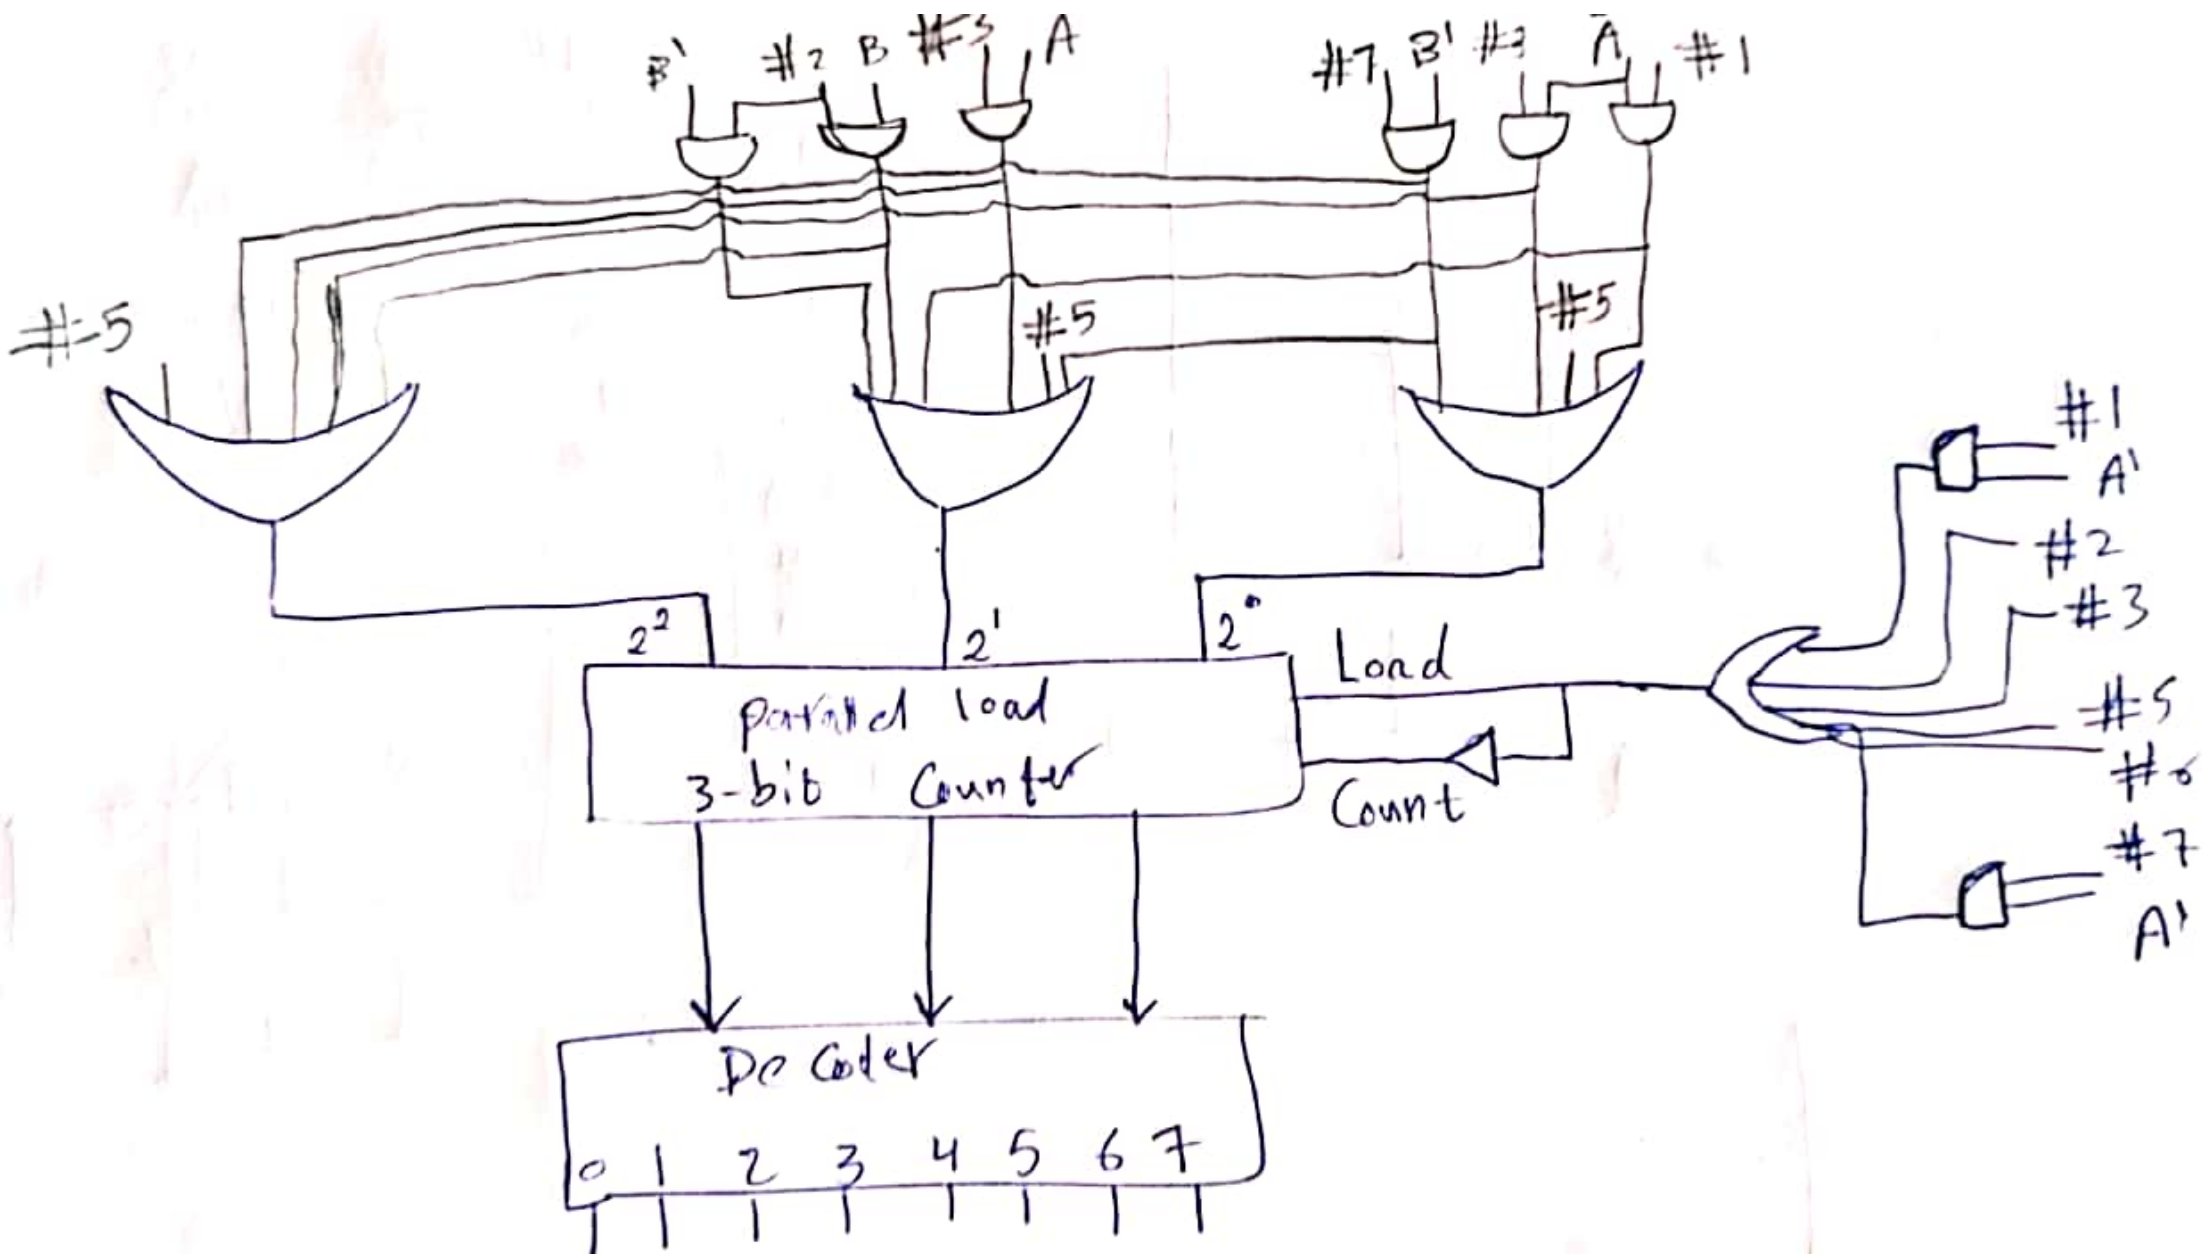 B' #2 B #3 A #7 B' A #1
#5 #5 #5
#1
A'
#2
#3
2² 2' 2°
Load
parallel load
#5
3-bit Counter
Count
#6
#7
A'
Decoder
0 1 2 3 4 5 6 7